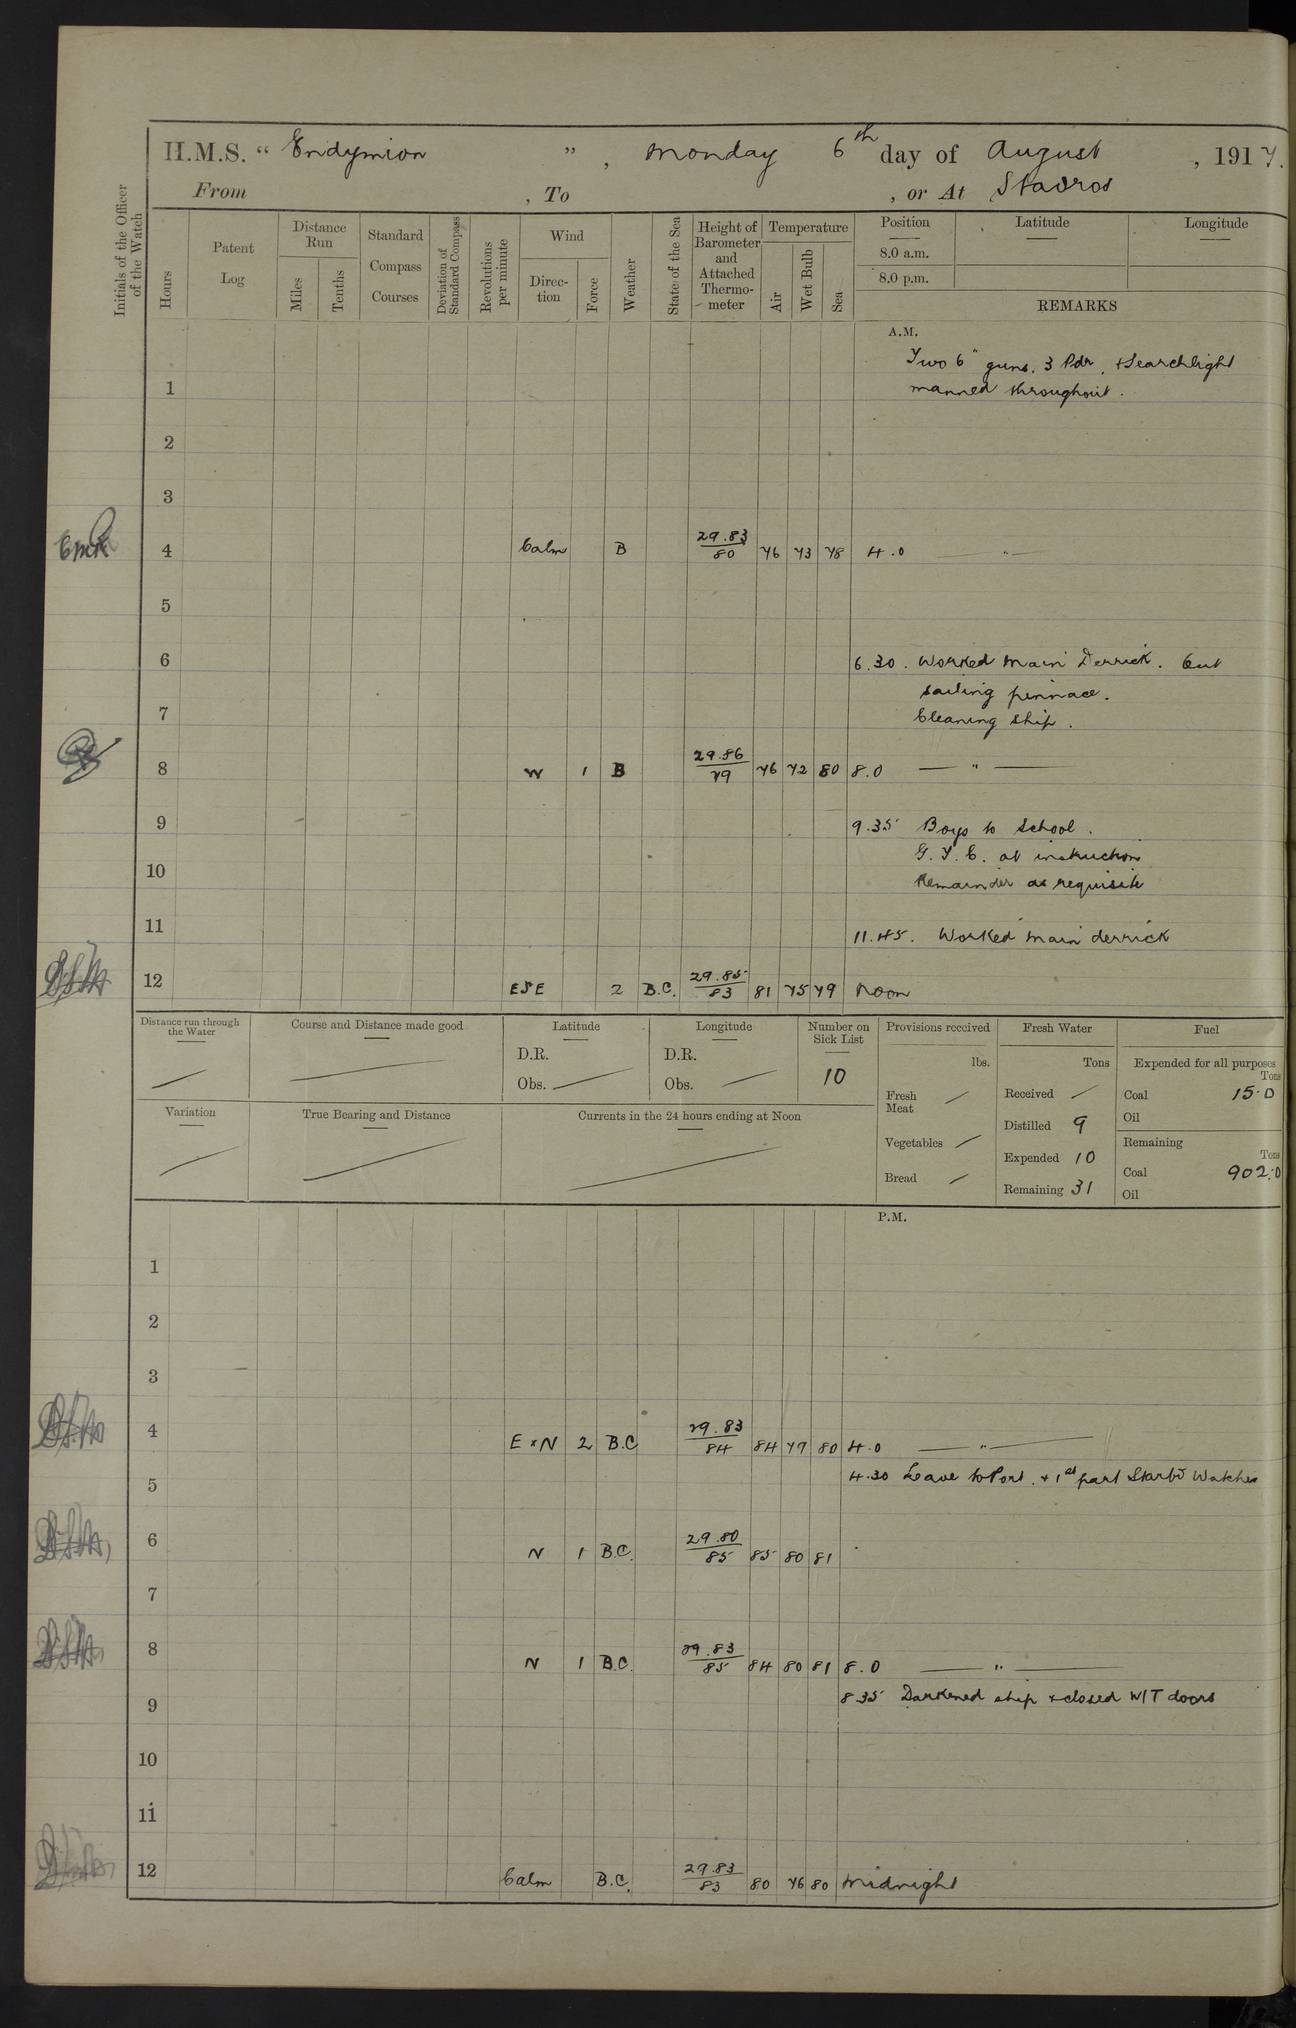 H.M.S. “ Endymion ” , Monday 6th day of August , 1917.
From , To , or At Stavros
Initials of the Officer of the Watch
Hours
Patent Log
Distance Run
Miles
Tenths
Standard Compass Courses
Deviation of Standard Compass
Revolutions per minute
Wind
Direc-tion
Force
Weather
State of the Sea
Height of Barometer and Attached Thermo-meter
Temperature
Air
Wet Bulb
Sea
Position
8.0 a.m.
8.0 p.m.
Latitude
Longitude
REMARKS
A.M.
Two 6" guns. 3 Pdr. + Searchlight
1 manned throughout.
2
3
4 Calm B 29.83/80 76 73 78 4.0 — " —
5
6 6.30. Worked Main Derrick. Out
sailing pinnace.
7 Cleaning ship.
8 W 1 B 29.86/79 76 72 80 8.0 — " —
9 9.35 Boys to School.
G. T. C. at instruction
10 Remainder as requisite
11 11.45. Worked main derrick
12 ESE 2 B.C. 29.85/83 81 75 79 Noon
Distance run through the Water
Course and Distance made good
Latitude
D.R.
Obs.
Longitude
D.R.
Obs.
Number on Sick List
10
Provisions received
lbs.
Fresh Meat
Vegetables
Bread
Fresh Water
Tons
Received
Distilled 9
Expended 10
Remaining 31
Fuel
Expended for all purposes
Tons
Coal 15.0
Oil
Remaining
Tons
Coal 902.0
Oil
Variation
True Bearing and Distance
Currents in the 24 hours ending at Noon
P.M.
1
2
3
4 E x N 2 B.C 29.83/84 84 79 80 4.0 — " —
4.30 Leave to Port. + 1st part Starbd Watches
5
6 N 1 B.C. 29.80/85 85 80 81
7
8 N 1 B.C. 29.83/85 84 80 81 8.0 — " —
8 35 Darkened ship + closed W/T doors
9
10
11
12 Calm B.C. 29.83/83 80 76 80 Midnight